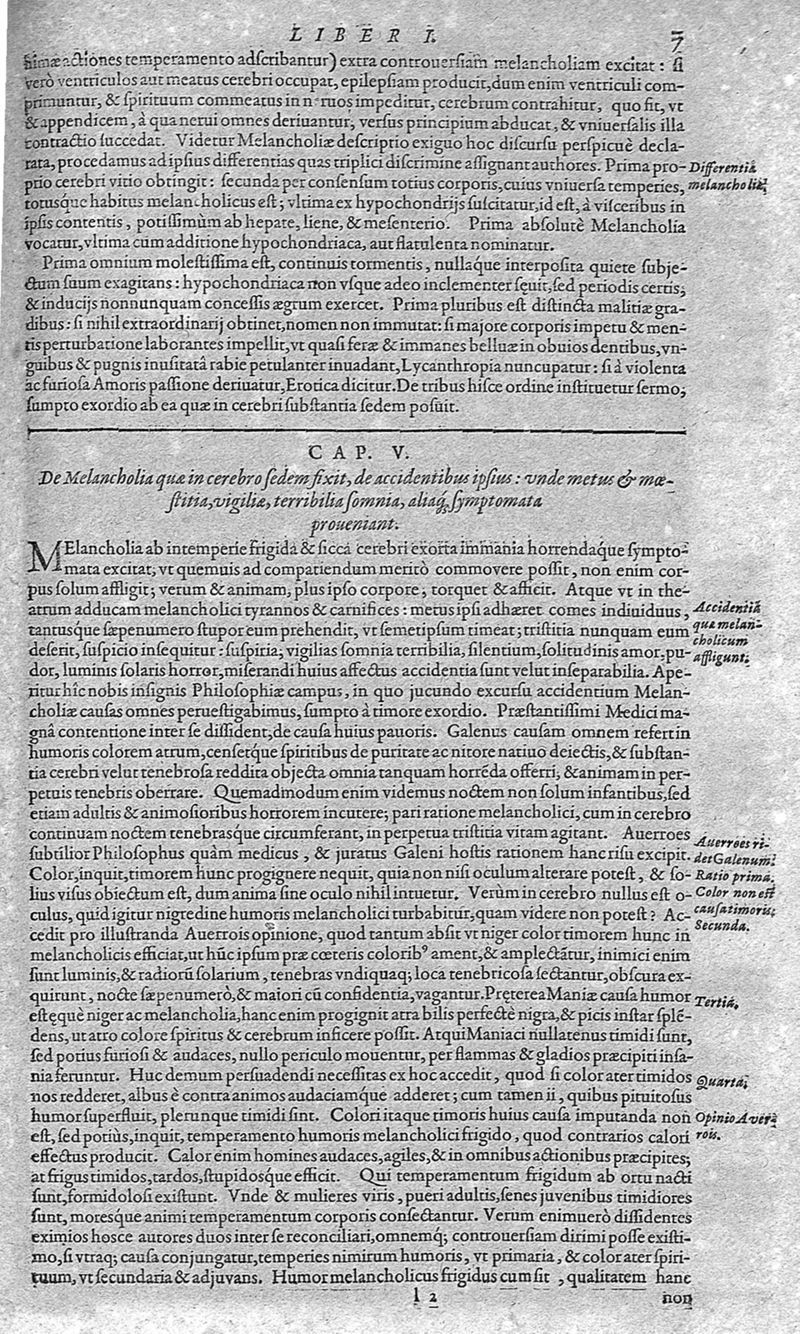 LIBER I.
7
himæ actiones temperamento adscribantur) extra controuersiam melancholiam excitat: si
verò ventriculos aut meatus cerebri occupat, epilepsiam producit, dum enim ventriculi com-
primuntur, & spirituum commeatus in neruos impeditur, cerebrum contrahitur, quo fit, vt
& appendicem, à qua nerui omnes deriuantur, versus principium abducat, & vniuersalis illa
contractio succedat. Videtur Melancholiæ descriptio exiguo hoc discursu perspicuè decla-
rata, procedamus ad ipsius differentias quas triplici discrimine assignant authores. Prima pro-
Differentiæ
prio cerebri vitio obtingit: secunda per consensum totius corporis, cuius vniuersa temperies,
melancholiæ
totusque habitus melancholicus est; vltima ex hypochondrijs suscitatur, id est, à visceribus in
ipsis contentis, potissimùm ab hepate, liene, & mesenterio. Prima absolutè Melancholia
vocatur, vltima cum additione hypochondriaca, aut flatulenta nominatur.
Prima omnium molestissima est, continuis tormentis, nullaque interposita quiete subje-
ctum suum exagitans: hypochondriaca non vsque adeo inclementer sęuit, sed periodis certis,
& inducijs nonnunquam concessis ægrum exercet. Prima pluribus est distincta malitiæ gra-
dibus: si nihil extraordinarij obtinet, nomen non immutat: si majore corporis impetu & men-
tis perturbatione laborantes impellit, vt quasi feræ & immanes belluæ in obuios dentibus, vn-
guibus & pugnis inusitatâ rabie petulanter inuadant, Lycanthropia nuncupatur: si à violenta
ac furiosa Amoris passione deriuatur, Erotica dicitur. De tribus hisce ordine instituetur sermo,
sumpto exordio ab ea quæ in cerebri substantia sedem posuit.
CAP. V.
De Melancholia quæ in cerebro sedem fixit, de accidentibus ipsius: vnde metus & mœ-
stitia, vigiliæ, terribilia somnia, aliaq; symptomata
proueniant.
MElancholia ab intemperie frigida & sicca cerebri exorta immania horrendaque sympto-
mata excitat, vt quemuis ad compatiendum meritò commovere possit, non enim cor-
pus solum affligit; verum & animam, plus ipso corpore, torquet & afficit. Atque vt in the-
atrum adducam melancholici tyrannos & carnifices: metus ipsi adhæret comes indiuiduus,
Accidentiæ
tantusque sæpenumero stupor eum prehendit, vt semetipsum timeat; tristitia nunquam eum
quæ melan-
deserit, suspicio insequitur: suspiria, vigilias somnia terribilia, silentium, solitudinis amor, pu-
cholicum
dor, luminis solaris horror, miserandi huius affectus accidentia sunt velut inseparabilia. Ape-
affligunt.
ritur hîc nobis insignis Philosophiæ campus, in quo jucundo excursu accidentium Melan-
choliæ causas omnes peruestigabimus, sumpto à timore exordio. Præstantissimi Medici ma-
gnâ contentione inter se dissident, de causa huius pauoris. Galenus causam omnem refert in
humoris colorem atrum, censetque spiritibus de puritate ac nitore natiuo deiectis, & substan-
tia cerebri velut tenebrosa reddita objecta omnia tanquam horrẽda offerri, & animam in per-
petuis tenebris oberrare. Quemadmodum enim videmus noctem non solum infantibus, sed
etiam adultis & animosioribus horrorem incutere; pari ratione melancholici, cum in cerebro
continuam noctem tenebrasque circumferant, in perpetua tristitia vitam agitant. Auerroes
Auerroes ri-
subtilior Philosophus quàm medicus, & juratus Galeni hostis rationem hanc risu excipit.
det Galenum.
Color, inquit, timorem hunc progignere nequit, quia non nisi oculum alterare potest, & so-
Ratio prima.
lius visus obiectum est, dum anima sine oculo nihil intuetur. Verùm in cerebro nullus est o-
Color non est
culus, quid igitur nigredine humoris melancholici turbabitur, quam videre non potest? Ac-
causa timoris;
cedit pro illustranda Auerrois opinione, quod tantum absit vt niger color timorem hunc in
Secunda.
melancholicis efficiat, ut hũc ipsum præ cœteris coloribꝰ ament, & amplectãtur, inimici enim
sunt luminis, & radiorũ solarium, tenebras vndiquaq; loca tenebricosa sectantur, obscura ex-
quirunt, nocte sæpenumerò, & maiori cũ confidentia, vagantur. Pręterea Maniæ causa humor
Tertia.
est ęquè niger ac melancholia, hanc enim progignit atra bilis perfectè nigra, & picis instar splẽ-
dens, ut atro colore spiritus & cerebrum inficere possit. Atqui Maniaci nullatenus timidi sunt,
sed potius furiosi & audaces, nullo periculo mouentur, per flammas & gladios præcipiti insa-
nia feruntur. Huc demum persuadendi necessitas ex hoc accedit, quod si color ater timidos
Quarta.
nos redderet, albus è contra animos audaciamque adderet; cum tamen ii, quibus pituitosus
humor superfluit, plerunque timidi sint. Colori itaque timoris huius causa imputanda non
Opinio Aver-
est, sed potiùs, inquit, temperamento humoris melancholici frigido, quod contrarios calori
rois.
effectus producit. Calor enim homines audaces, agiles, & in omnibus actionibus præcipites;
at frigus timidos, tardos, stupidosque efficit. Qui temperamentum frigidum ab ortu nacti
sunt, formidolosi existunt. Vnde & mulieres viris, pueri adultis, senes juvenibus timidiores
sunt, moresque animi temperamentum corporis consectantur. Verum enimuerò dissidentes
eximios hosce autores duos inter se reconciliari, omnemq; controuersiam dirimi posse existi-
mo, si vtraq; causa conjungatur, temperies nimirum humoris, vt primaria, & color ater spiri-
tuum, vt secundaria & adjuvans. Humor melancholicus frigidus cum sit, qualitatem hanc
l 2
non